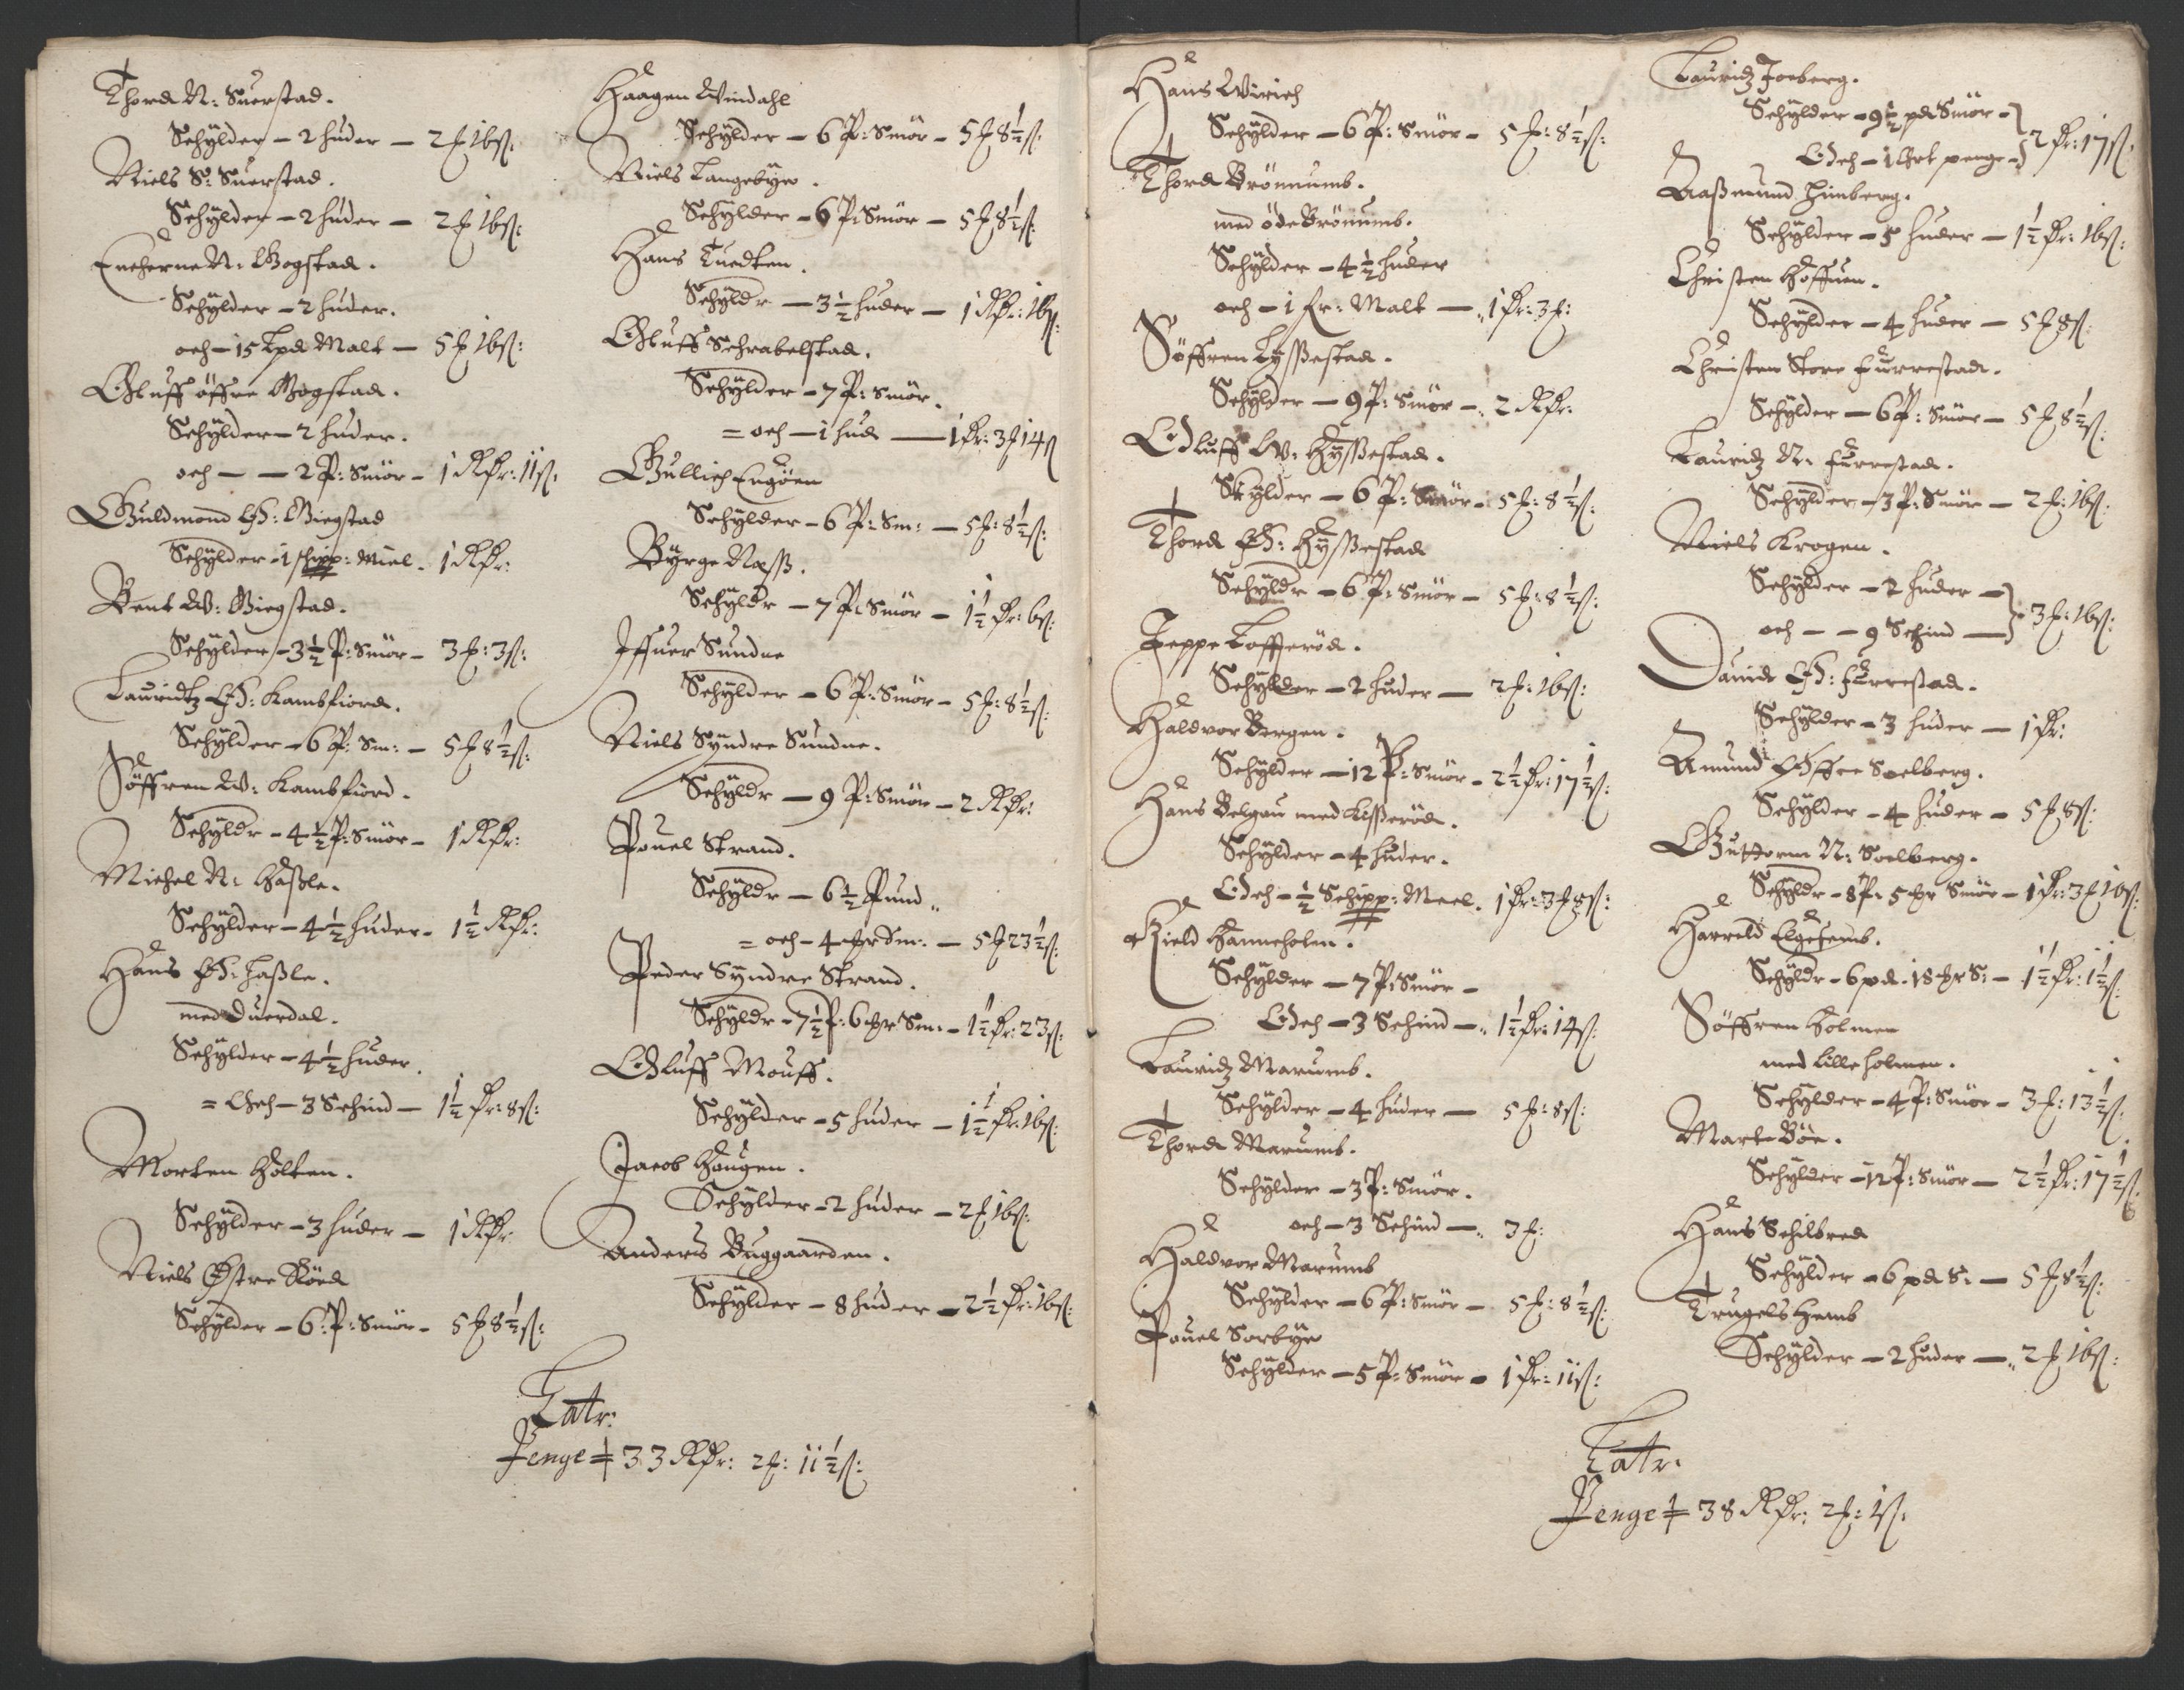 Thord N: Suerstad.
Schÿlder – 2 huder – 2 ℔ 16 ß:
Niels S: Suerstad.
Schÿlder – 2 huder – 2 ℔ 16 ß:
N: Bogstad.
Schÿlder – 2 huder.
och – 15 Lpd Malt – 5 ℔ 16 ß:
Oluff öffre Bogstad.
Schÿlder – 2 huder.
och – – 2 P: Smör – 1 Rdr: 11 ß.
Guldmond Ø: Giegstad
Schÿlder – 1 schipp: Miel. 1 Rdr:
Bent W: Giegstad.
Schÿlder – 3½ P: Smör – 3 ℔: 3 ß:
Lauridtz Ø: Kambfiord.
Schÿlder – 6 P: Sm: – 5 ℔ 8½ ß:
Söffren W: Kambfiord.
Schÿldr – 4½ P: Smör – 1 Rdr:
Michel N: Haßle.
Schÿlder – 4½ huder – 1½ Rdr:
Hans Ø: Haßle.
med Duerdal.
Schÿlder – 4½ huder.
= Och – 3 Schind – 1½ dr: 8 ß:
Morten Holten.
Schÿlder – 3 huder – 1 Rdr
Niels Østre Röed
Schÿlder – 6 P: Smör – 5 ℔ 8½ ß:
Haagen Windahl
Schÿlder – 6 P: Smör – 5 ℔ 8½ ß.
Niels Langebÿe.
Schÿlder – 6 P: Smör – 5 ℔ 8½ ß:
Hans Tuedten.
Schÿldr – 3½ huder – 1 Rdr: 16 ß:
Oluff Schrabelstad.
Schÿlder – 7 P: Smör.
= och – 1 hud – 1 dr: 3 ℔ 14 ß
Gullich Engöen
Schÿlder – 6 P: Sm: – 5 ℔: 8½ ß:
Bÿrge Næss.
Schÿldr – 7 P: Smör – 1½ dr: 6 ß:
Iffuer Sundne
Schÿlder – 6 P: Smör – 5 ℔: 8½ ß:
Niels Sÿndre Sundne.
Schÿldr – 9 P: Smör – 2 Rdr:
Pouel Strand.
Schÿldr – 6½ Pund
= och – 4 Sm: – 5 ℔ 23½ ß:
Peder Sÿndre Strand.
Schÿldr – 7½ P: 6 Sm: – 1½ dr: 23 ß:
Oluff Mouff.
Schÿlder – 5 huder – 1½ dr: 16 ß:
Jacob Haugen.
Schÿlder – 2 huder – 2 ℔ 16 ß:
Anders Buggaarden.
Schÿlder – 8 huder – 2½ dr: 16 ß:
Latr:
Penge ≠ 33 Rdr: 2 ℔: 11½ ß:
Hans Wirich
Schÿlder – 6 P: Smör – 5 ℔: 8½ ß:
Thord Brönumb.
med öde Brönumb.
Schÿlder – 4½ huder
och – 1 Malt – 1 dr: 3 ℔:
Söffren Lÿssestad.
Schÿlder – 9 P: Smör – 2 Rdr:
Oluff W: Hÿssestad.
Skÿlder – 6 P: Smör – 5 ℔: 8½ ß:
Thord Ø: Hÿssestad
Schÿldr – 6 P: Smör – 5 ℔: 8½ ß:
Jeppe Lofferöd.
Schÿlder – 2 huder – 2 ℔: 16 ß:
Haldvor Bergen.
Schÿlder – 12 P: Smör – 2½ dr: 17½ ß:
Hans Belgau med Kisseröd.
Schÿlder – 4 huder.
Och – ½ Schipp: Meel. 1 dr: 3 ℔ 8 ß:
Kield Hanneholm.
Schÿlder – 7 P: Smör –
Och – 3 Schind – 1½ dr: 14 ß:
Lauridz Marumb.
Schÿlder – 4 huder – 5 ℔: 8 ß:
Thord Marumb.
Schÿlder – 3 P: Smör.
och – 3 Schind – 3 ℔:
Haldvor Marumb
Schÿlder – 6 P: Smör – 5 ℔: 8½ ß:
Pouel Sorbÿe
Schÿlder – 5 P: Smör – 1 dr: 11 ß:
Lauridz Joeberg.
Schÿlder – 9½ pd Smör –
Och – 1 Ort penge – 2 dr: 17 ß:
Aaßmund Himberg.
Schÿlder – 5 huder – 1½ dr: 16 ß:
Christen Hoffuen.
Schÿlder – 4 huder – 5 ℔ 8 ß:
Christen Store Furrestad.
Schÿlder – 6 P: Smör – 5 ℔ 8½ ß:
Lauridz N: Furrestad.
Schÿlder – 3 P: Smör – 2 ℔: 16 ß:
Niels Krogen.
Schÿlder – 2 huder –
och – – 9 Schind – 3 ℔: 16 ß:
David Ø: Furrestad.
Schÿlder – 3 huder – 1 dr:
Amund Øffre Soelberg.
Schÿlder – 4 huder – 5 ℔ 8 ß:
Guttorm N: Soelberg.
Schÿldr – 8 P: 5 Smör – 1 dr: 3 ℔ 16 ß:
Harreld Elgesemb.
Schÿldr – 6 pd. 18 S: – 1½ dr: 1½ ß:
Söffren Holmen
med lille holmen.
Schÿlder – 4 P: Smör – 3 ℔: 13½ ß:
Marte Böe.
Schÿlder – 12 P: Smör – 2½ dr: 17½ ß:
Hans Schilbred
Schÿlder – 6 pd S: – 5 ℔ 8½ ß:
Trugels Hemb
Schÿlder – 2 huder – 2 ℔ 16 ß:
Latr.
Penge ≠ 38 Rdr: 2 ℔: 1 ß.